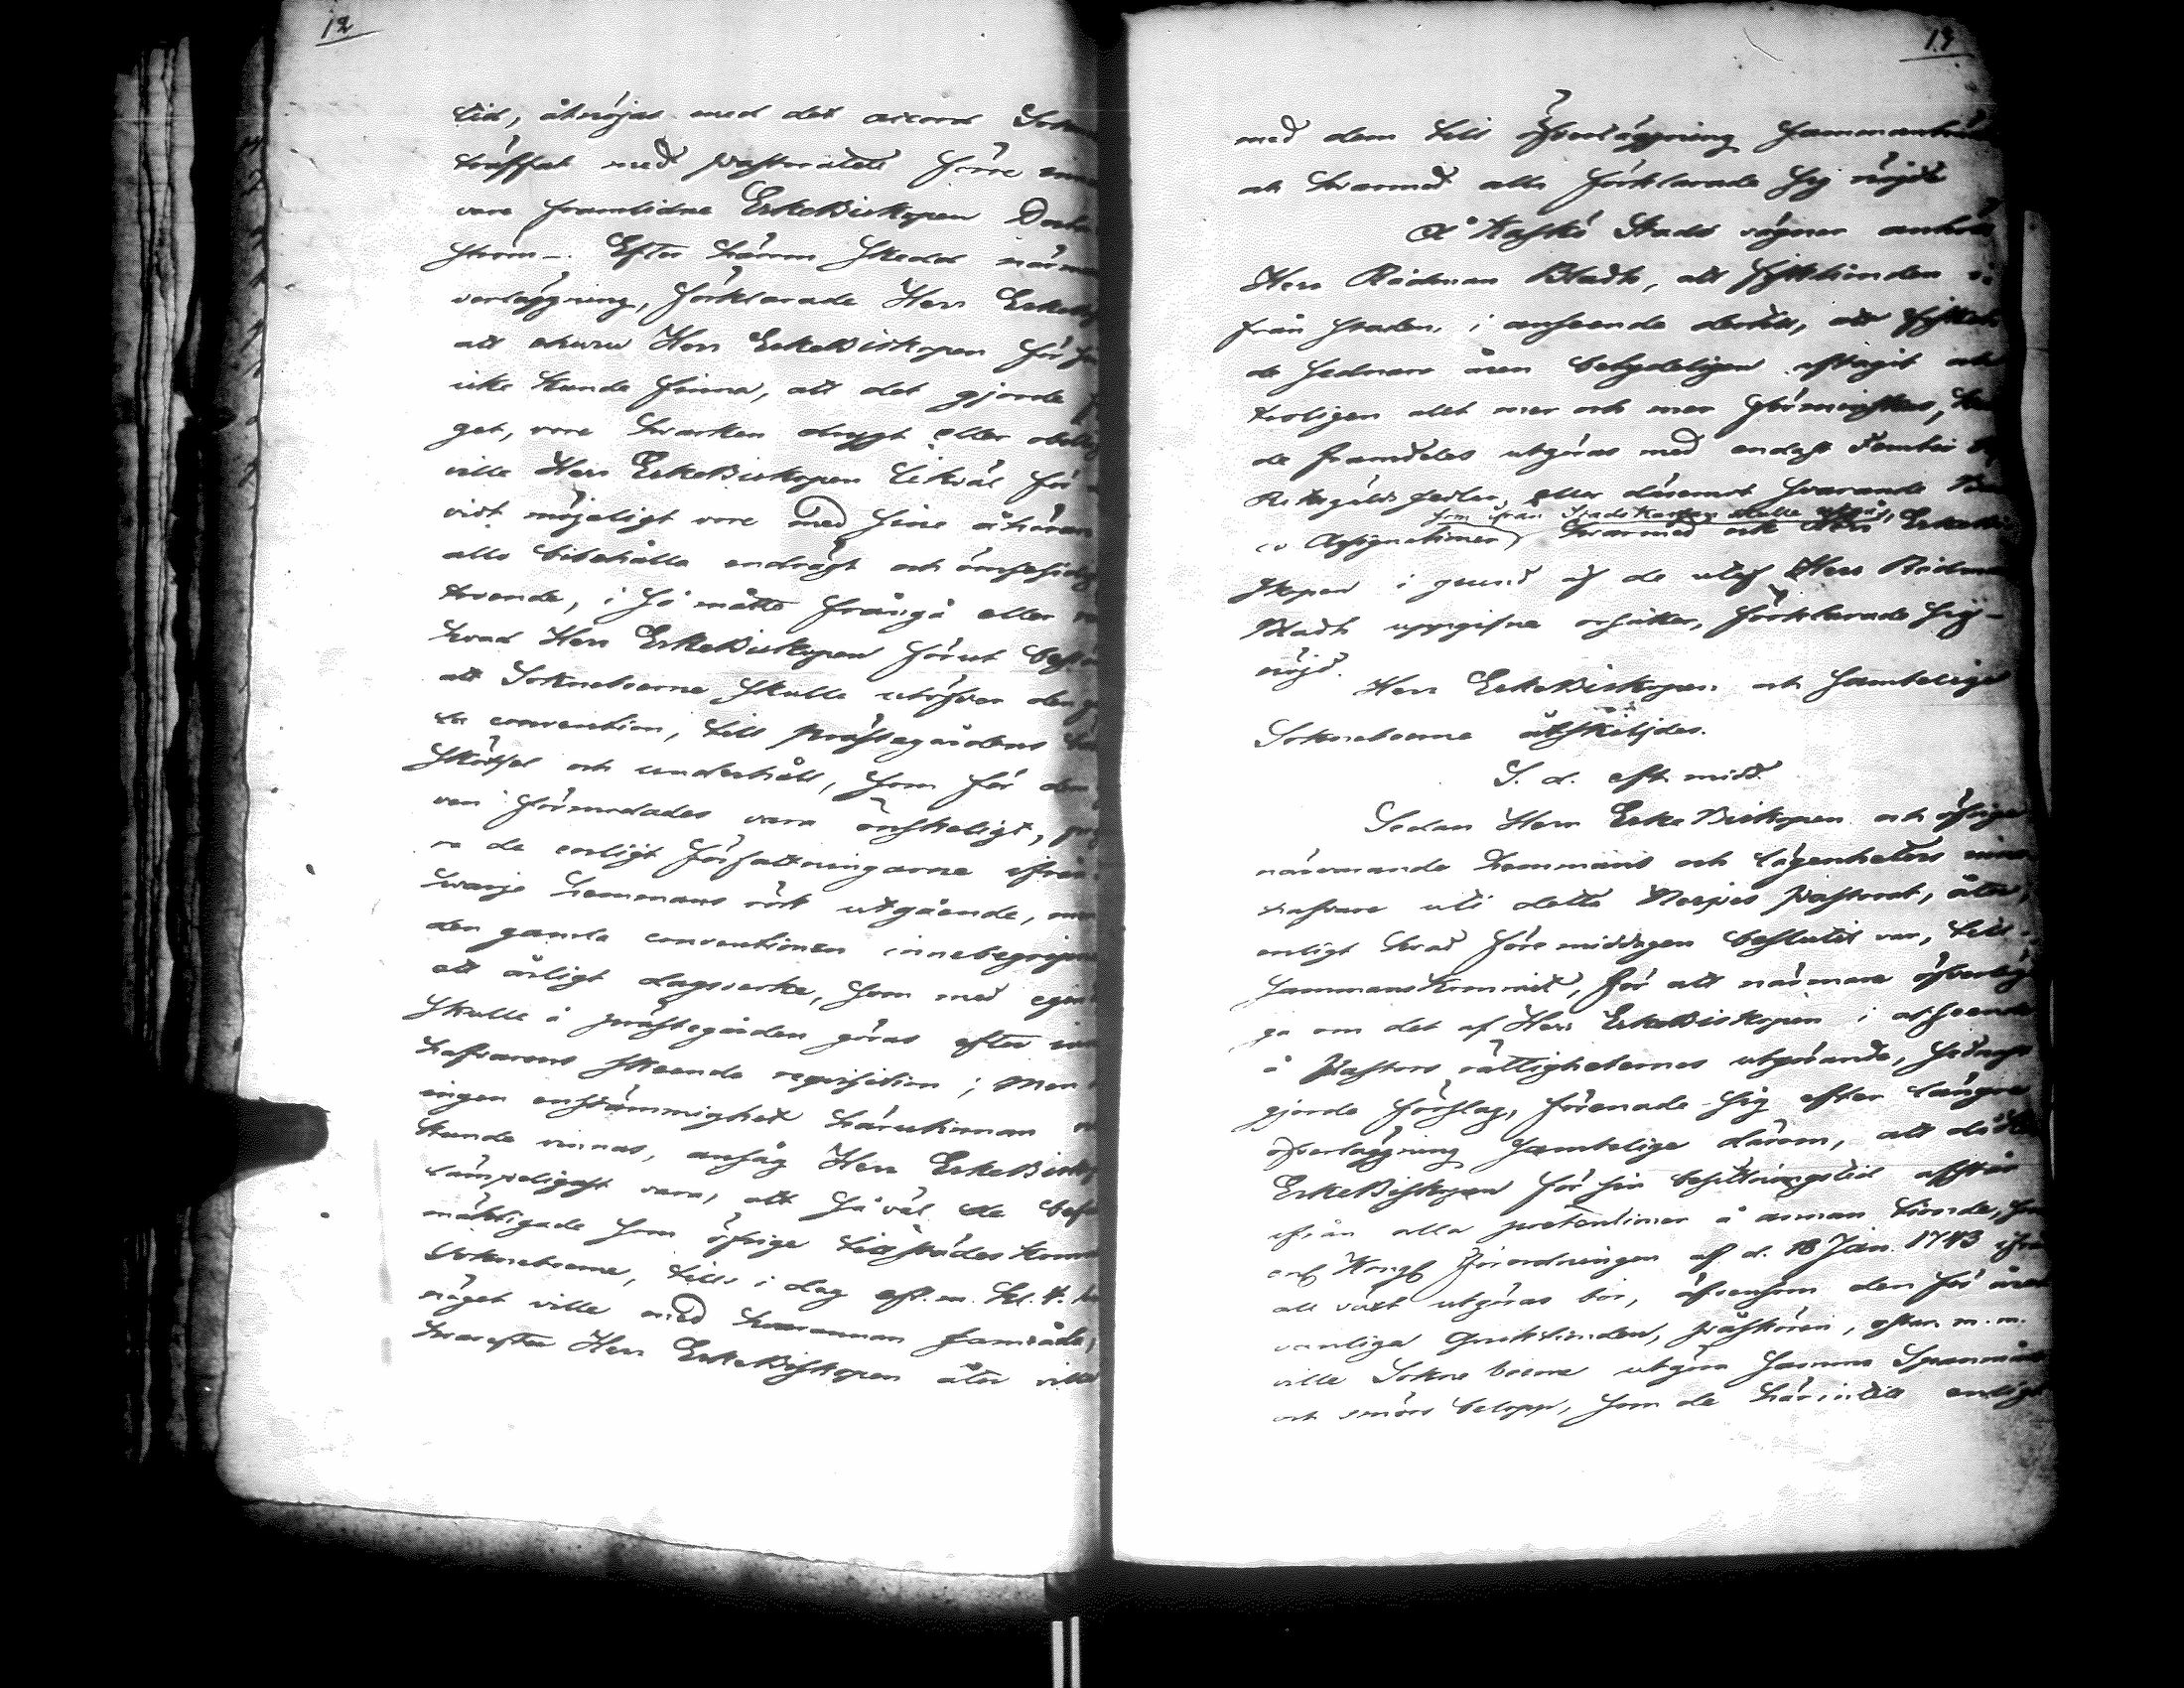 12
tid, åtnöjas med det accord Sokne
träffat med Pastoratets förre inne
vare framlidne ErkeBiskopen
ström -. Efter härom skedd närma
verläggning, förklarade Herr ErkeBi
att ehuru Herr ErkeBiskopen för
icke kunde finna, att det gjorde
get, vore hvarken drygt eller obill
ville Herr ErkeBiskopen likväl för
vidt möjeligt vore med sine åhörare
alls bibehålla endrägt och ömsesidig
troende, i så måtto frångå eller
hvad Herr ErkeBiskopen förut
att Sokneboerne skulle utöfver den
la convention, till Prästegårdens
skötsel och underhåll, som för den
ven förmodades vara önskeligt,
ra de enligt författningarne ifrån
hvarje hemmans rök utgående,
den gamla conventionen innebegripne
ett årligt dagsverke, som med egen
skulle å prästegården göras efter inne
hafvarens skeende requisition; Men
ingen enstämmighet härutinnan
kunde vinnas, ansåg Herr ErkeBisk
lämpeligast vara, att så väl de
mäktigade som öfrige tillstädes komne
Sokneboerne, till i dag eft. m. kl. 4.
något ville med hvarannan samråda,
hvarefter Herr ErkeBiskopen åter ville
13
med dem till öfverläggning sammanträda
och hvarmed alla förklarade sig nöjde
Å Kaskö Stads vägnar anhöll
Herr Rådman Bladh, att fisktionden
från staden, i anseende dertill, att fisket
de sednare åren betydeligen aftagit och
troligen allt mer och mer förminskas,
de framdeles utgöras med endast Femtio
Riksgälds sedlar, eller däremot svarande
som ifrån Stads Kassan skulle utgå,
co Assignationer, hvarmed ock Herr ErkeBi
skopen i grund af de utaf Herr Rådman
Bladh uppgifne orsaker, förklarade sig
nöjd.
Herr ErkeBiskopen och samtelige
Sokneboerne åtskiljdes.
S. d. eft. midd.
Sedan Herr ErkeBiskopen och öfrige
närvarande hemmans och lägenheters inne
hafvare uti detta Nerpes Pastorat, åter,
enligt hvad före middagen beslutit var, till
sammans kommit, för att närmare öfverläg
ga om det af Herr ErkeBiskopen i afseende
å Pastors rättigheternes utgörande, sednast
gjorde förslag, förenade sig efter längre
öfverläggning samtelige därom, att då
ErkeBiskopen för sin besittningstid afstår
ifrån alla pretentioner å annan tionde,
enl Kongl Förordningen af d. 18 Jan. 1743
all växt utgöras bör, äfvensom den för
vanliga Qvicktionden, påskören, osten m. m.
ville Sokneboerne utgöra samma Spanmåls
och smörs belopp, som de härintill enligt